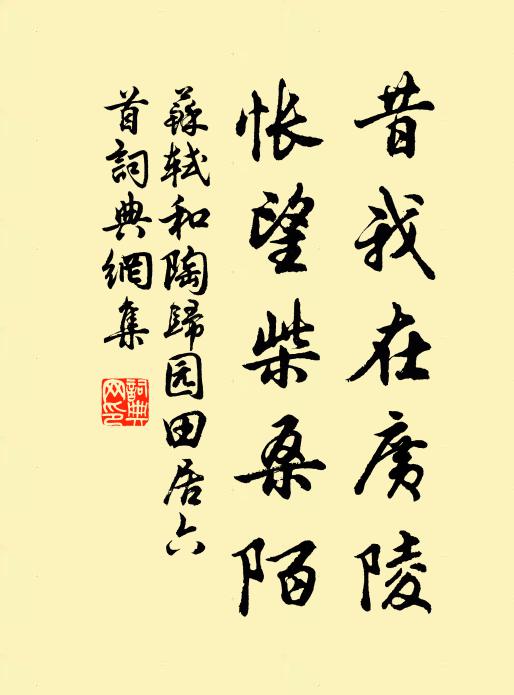 昔我在廣陵
悵望柴桑陌
蘇軾和陶歸园田居六
首詞典網集
詞典
网印